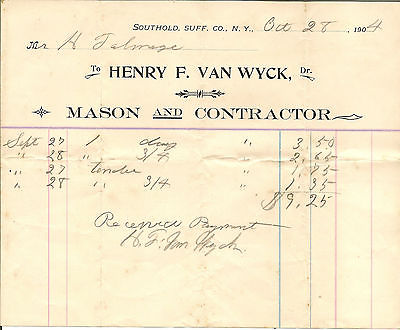 SOUTHOLD, SUFF. CO., N. Y., Oct 28, 1904
Mr H Talmage
To HENRY F. VAN WYCK, Dr.
MASON AND CONTRACTOR
Sept 27 1 day " 3.50
" 28 " 3/4 " 2.65
" 27 tender " 1.75
" 28 " 3/4 " 1.35
$9.25
Received Payment
H. F. Van Wyck